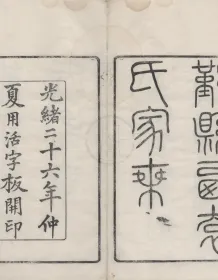 鄞縣西袁
氏家乘
光緒二十六年仲
夏用活字板開印